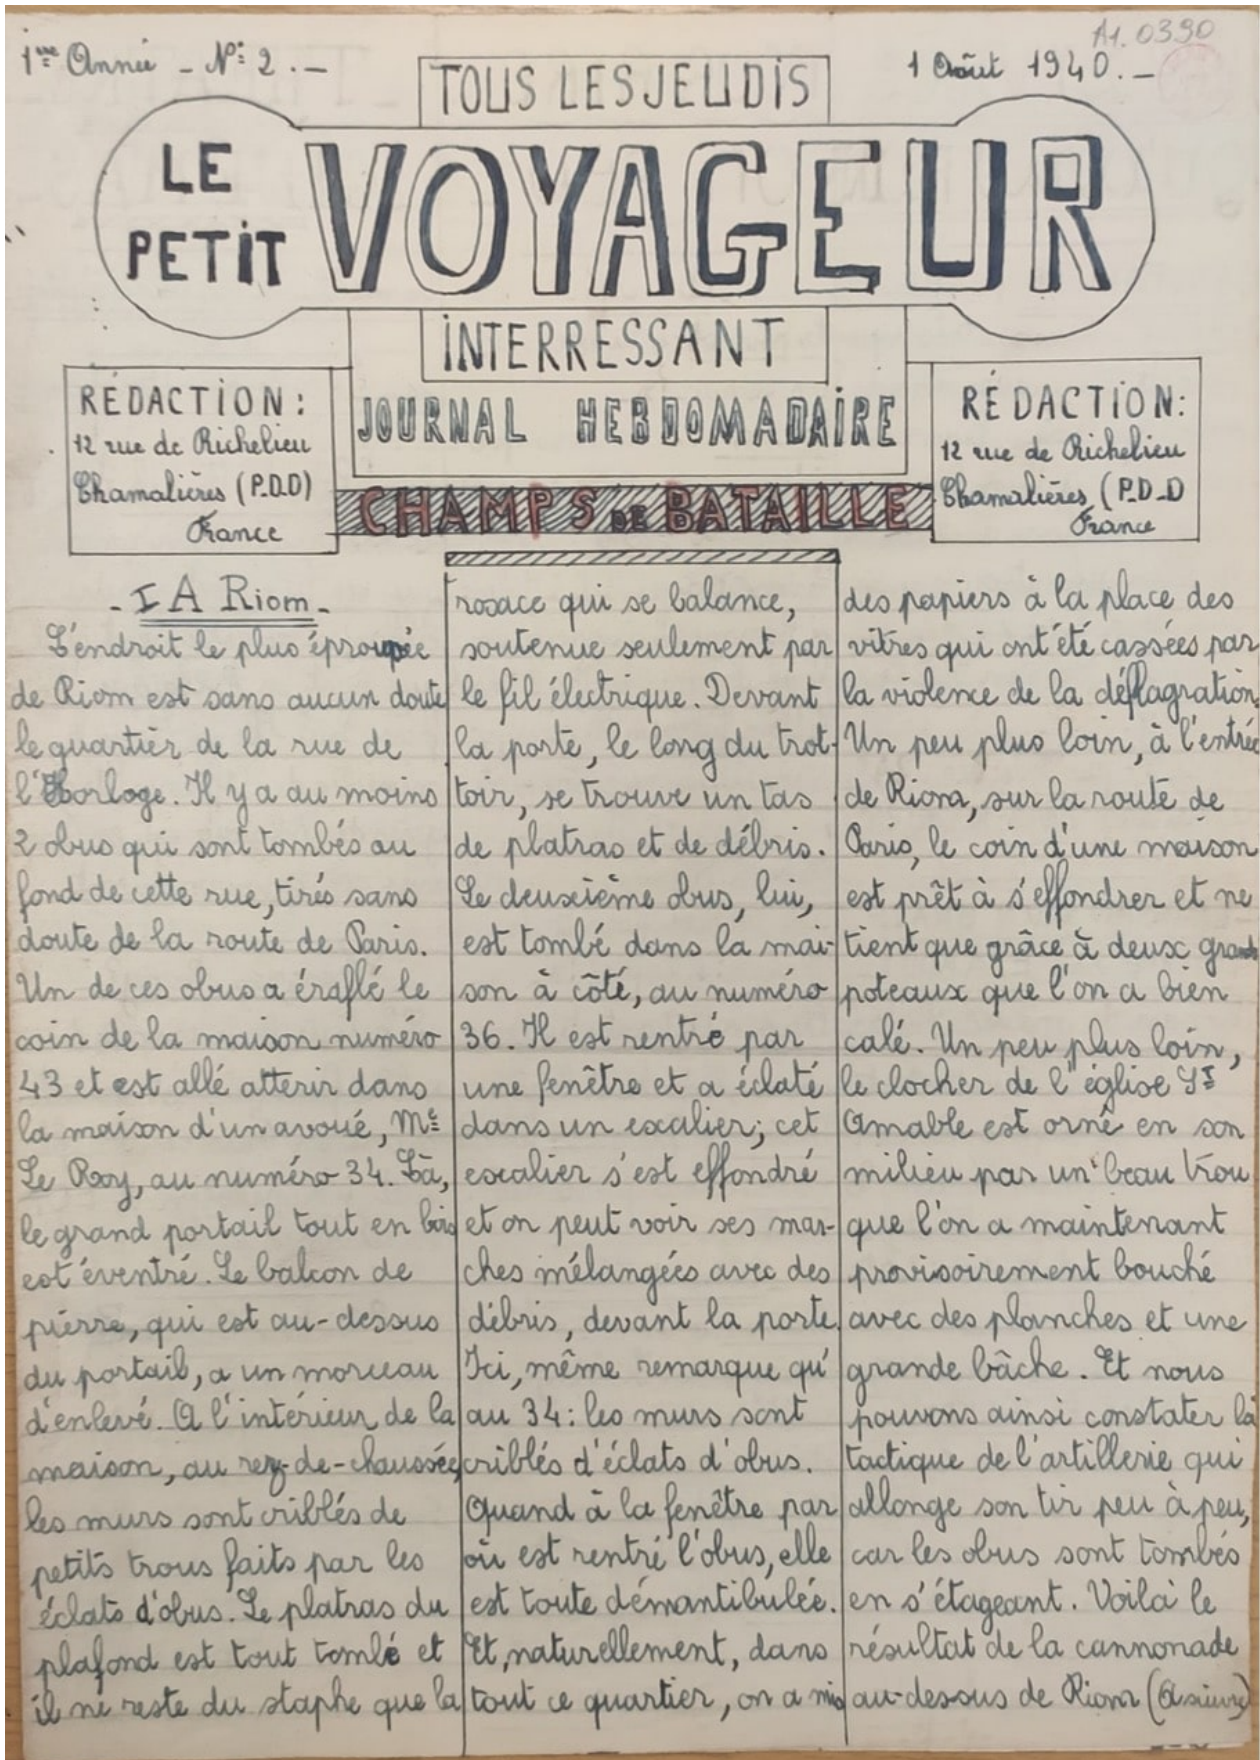 A1.0390
1ère Année - N° 2 . -
1 Août 1940. -
TOUS LES JEUDIS
LE
PETIT
VOYAGEUR
INTERRESSANT
JOURNAL HEBDOMADAIRE
RÉDACTION :
12 rue de Richelieu
Chamalières (P.D.D)
France
RÉDACTION :
12 rue de Richelieu
Chamalières (P.D.D
France
CHAMPS DE BATAILLE
- I A Riom -
L'endroit le plus éprouvée
de Riom est sans aucun doute
le quartier de la rue de
l'Horloge. Il y a au moins
2 obus qui sont tombés au
fond de cette rue, tirés sans
doute de la route de Paris.
Un de ces obus a éraflé le
coin de la maison numéro
43 et est allé atterir dans
la maison d'un avoué, Me
Le Roy, au numéro 34. Là,
le grand portail tout en bois
est éventré. Le balcon de
pierre, qui est au-dessus
du portail, a un morceau
d'enlevé. A l'intérieur de la
maison, au rez-de-chaussée,
les murs sont criblés de
petits trous faits par les
éclats d'obus. Le platras du
plafond est tout tombé et
il ne reste du staphe que la
rosace qui se balance,
soutenue seulement par
le fil électrique. Devant
la porte, le long du trot-
toir, se trouve un tas
de platras et de débris.
Le deuxième obus, lui,
est tombé dans la mai-
son à côté, au numéro
36. Il est rentré par
une fenêtre et a éclaté
dans un escalier; cet
escalier s'est effondré
et on peut voir ses mar-
ches mélangées avec des
débris, devant la porte.
Ici, même remarque qu'
au 34: les murs sont
criblés d'éclats d'obus.
Quand à la fenêtre par
où est rentré l'obus, elle
est toute démantibulée.
Et, naturellement, dans
tout ce quartier, on a mis
des papiers à la place des
vitres qui ont été cassées par
la violence de la déflagration.
Un peu plus loin, à l'entrée
de Riom, sur la route de
Paris, le coin d'une maison
est prêt à s'effondrer et ne
tient que grâce à deux grands
poteaux que l'on a bien
calé. Un peu plus loin,
le clocher de l'église St
Amable est orné en son
milieu par un beau trou
que l'on a maintenant
provisoirement bouché
avec des planches et une
grande bâche. Et nous
pouvons ainsi constater la
tactique de l'artillerie qui
allonge son tir peu à peu,
car les obus sont tombés
en s'étageant. Voilà le
résultat de la cannonade
au-dessus de Riom (A suivre)